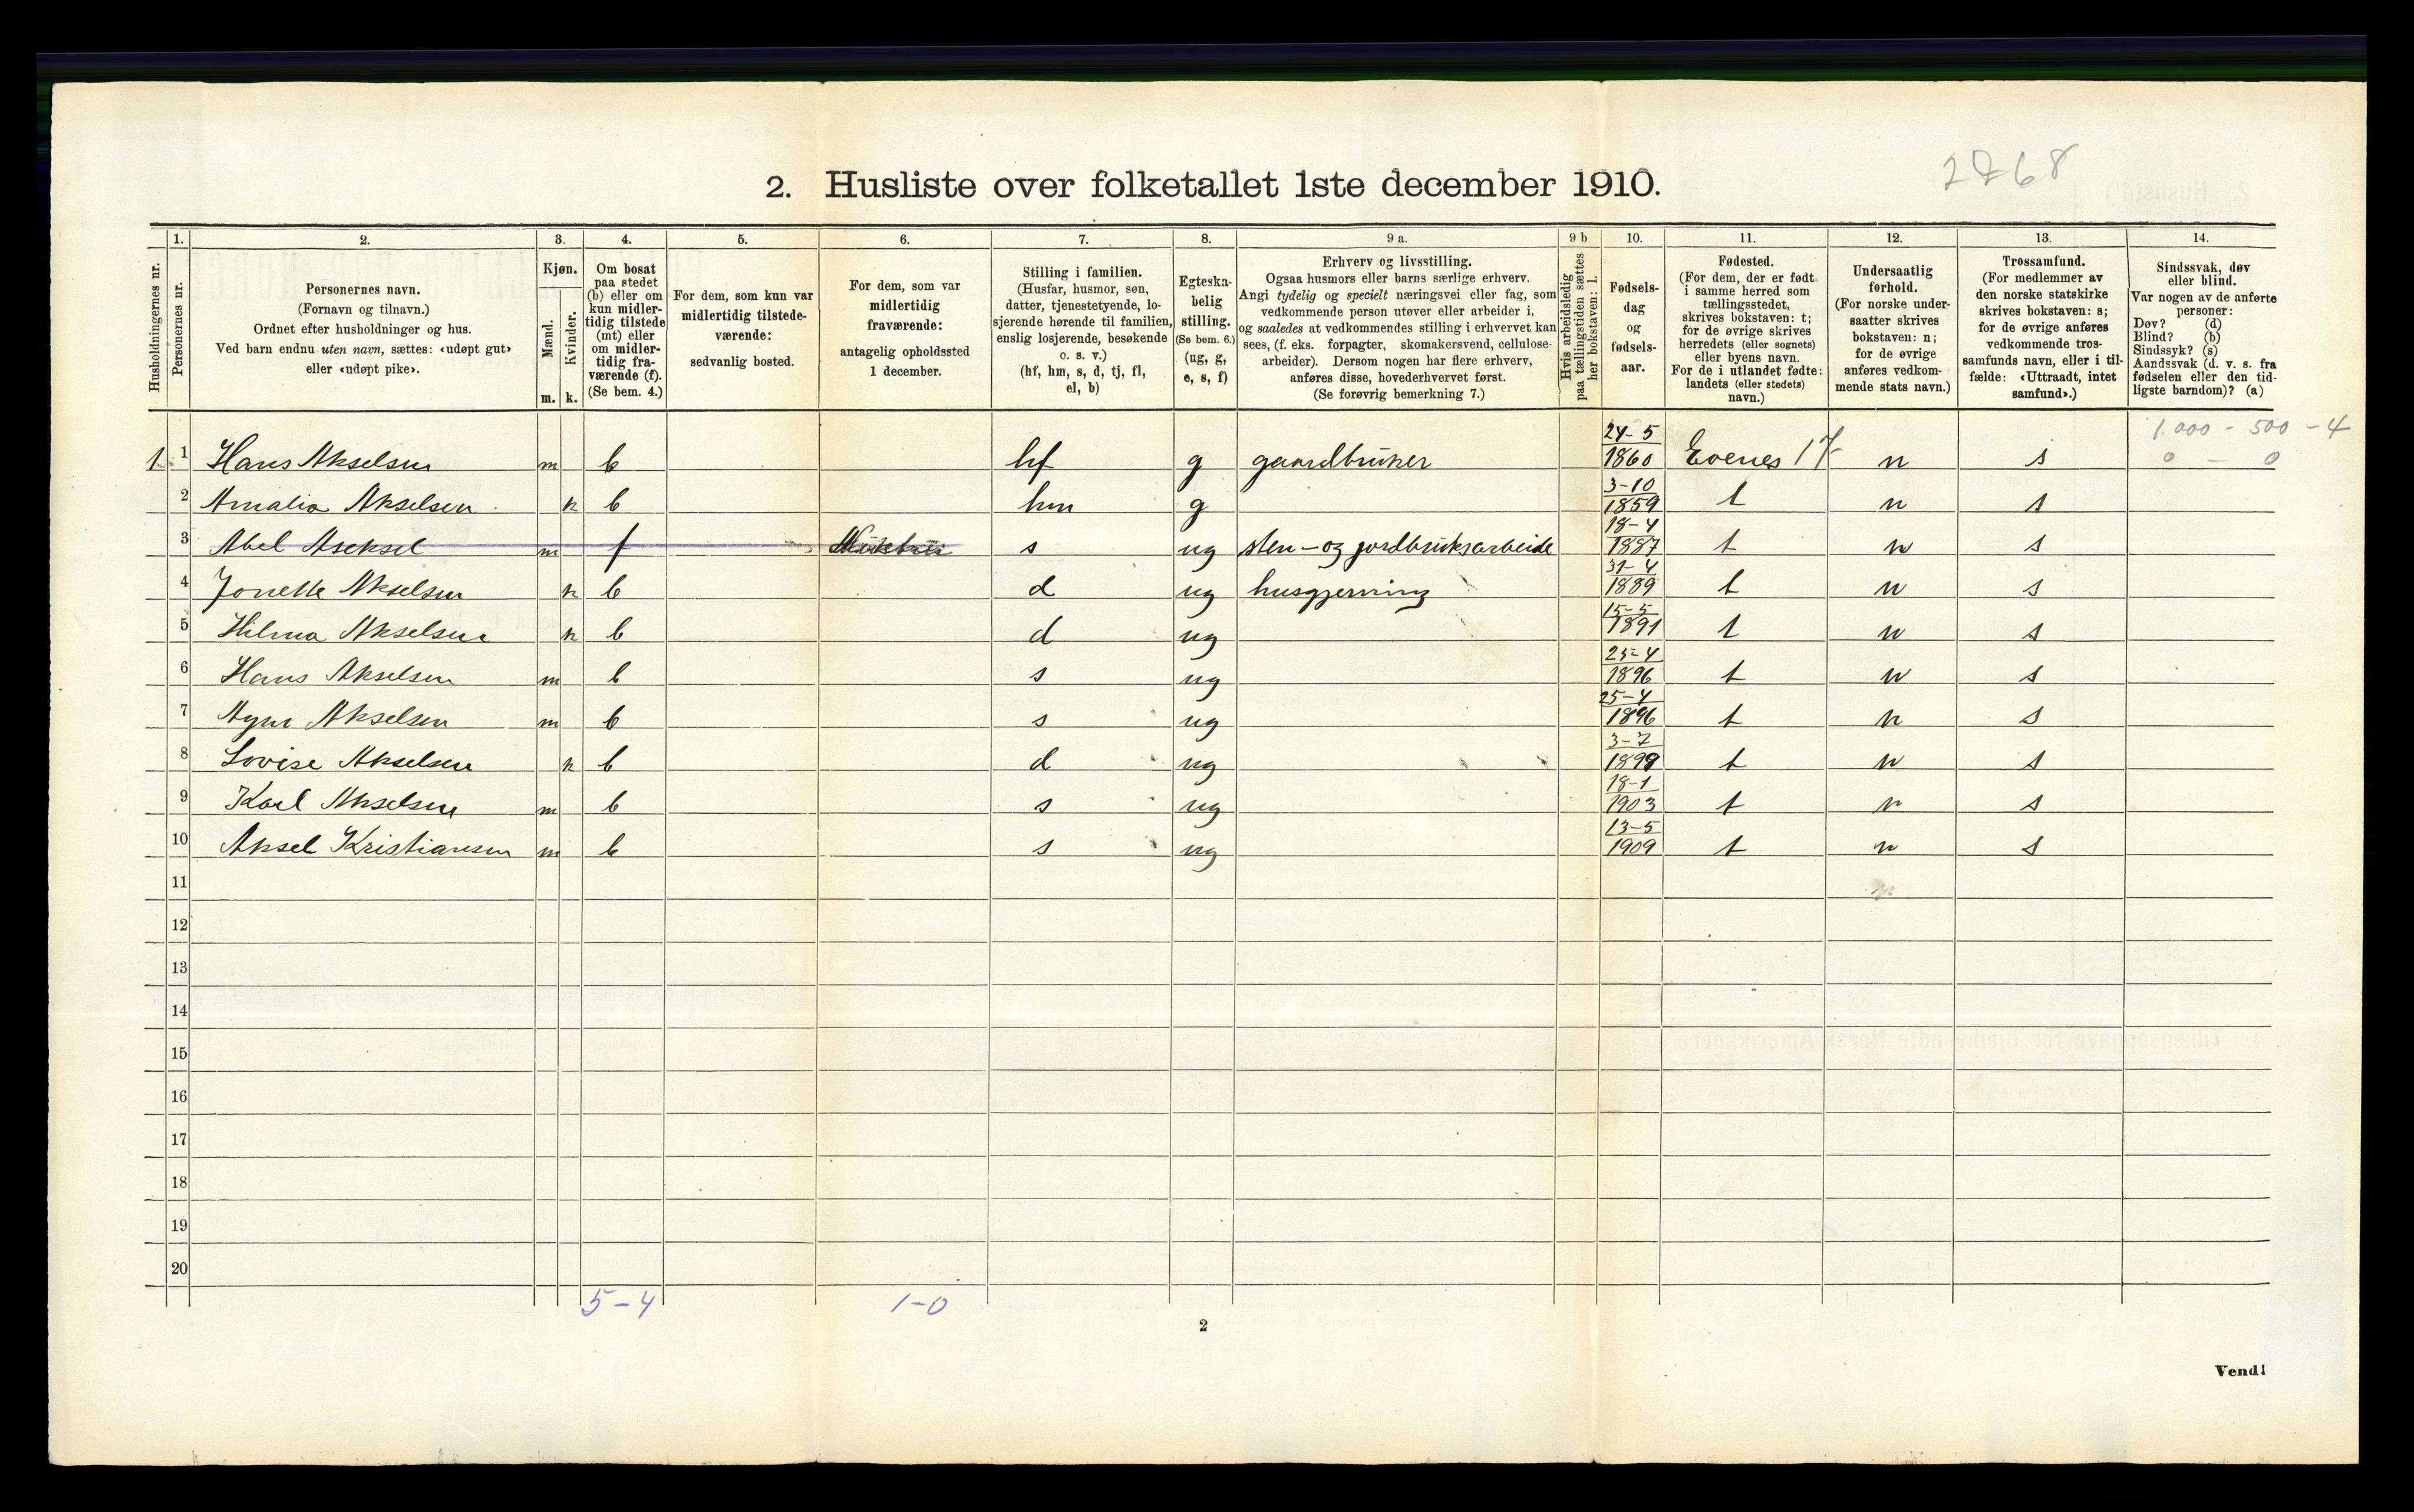 2768
2. Husliste over folketallet 1ste december 1910.
Husholdningernes nr.
1.
Personernes nr.
2.
Personernes navn.
(Fornavn og tilnavn.)
Ordnet efter husholdninger og hus.
Ved barn endnu uten navn, sættes: «udøpt gut»
eller «udøpt pike».
3.
Kjøn.
Mænd.
Kvinder.
m. k.
4.
Om bosat
paa stedet
(b) eller om
kun midler-
tidig tilstede
(mt) eller
om midler-
tidig fra-
værende (f).
(Se bem. 4.)
5.
For dem, som kun var
midlertidig tilstede-
værende:
sedvanlig bosted.
6.
For dem, som var
midlertidig
fraværende:
antagelig opholdssted
1 december.
7.
Stilling i familien.
(Husfar, husmor, søn,
datter, tjenestetyende, lo-
sjerende hørende til familien,
enslig losjerende, besøkende
o. s. v.)
(hf, hm, s, d, tj, fl,
el, b)
8.
Egteska-
belig
stilling.
(Se bem. 6.)
(ug, g,
e, s, f)
9 a.
Erhverv og livsstilling.
Ogsaa husmors eller barns særlige erhverv.
Angi tydelig og specielt næringsvei eller fag, som
vedkommende person utøver eller arbeider i,
og saaledes at vedkommendes stilling i erhvervet kan
sees, (f. eks. forpagter, skomakersvend, cellulose-
arbeider). Dersom nogen har flere erhverv,
anføres disse, hovederhvervet først.
(Se forøvrig bemerkning 7.)
9 b
Hvis arbeidsledig
paa tællingstiden sættes
her bokstaven: l.
10.
Fødsels-
dag
og
fødsels-
aar.
11.
Fødested.
(For dem, der er født
i samme herred som
tællingsstedet,
skrives bokstaven: t;
for de øvrige skrives
herredets (eller sognets)
eller byens navn.
For de i utlandet fødte:
landets (eller stedets)
navn.)
12.
Undersaatlig
forhold.
(For norske under-
saatter skrives
bokstaven: n;
for de øvrige
anføres vedkom-
mende stats navn.)
13.
Trossamfund.
(For medlemmer av
den norske statskirke
skrives bokstaven: s;
for de øvrige anføres
vedkommende tros-
samfunds navn, eller i til-
fælde: «Uttraadt, intet
samfund».)
14.
Sindssvak, døv
eller blind.
Var nogen av de anførte
personer:
Døv? (d)
Blind? (b)
Sindssyk? (s)
Aandssvak (d. v. s. fra
fødselen eller den tid-
ligste barndom)? (a)
1.000 - 500 - 4
0 - 0
1 1 Hans Akselsen m b hf g gaardbruker 24-5 1860 Evenes 17 n s
2 Amalia Akselsen k b hm g 3-10 1859 t n s
3 Abel Aseksel m f s ug sten- og jordbruksarbeide 18-4 1887 t n s
4 Jonette Akselsen k b d ug husgjerning 31-4 1889 t n s
5 Hilma Akselsen k b d ug 15-5 1891 t n s
6 Hans Akselsen m b s ug 25-4 1896 t n s
7 Agur Akselsen m b s ug 25-4 1896 t n s
8 Lovise Akselsen k b d ug 3-7 1899 t n s
9 Karl Akselsen m b s ug 18-1 1903 t n s
10 Aksel Kristiansen m b s ug 13-5 1909 t n s
11
12
13
14
15
16
17
18
19
20
5-4 1-0
2
Vend!